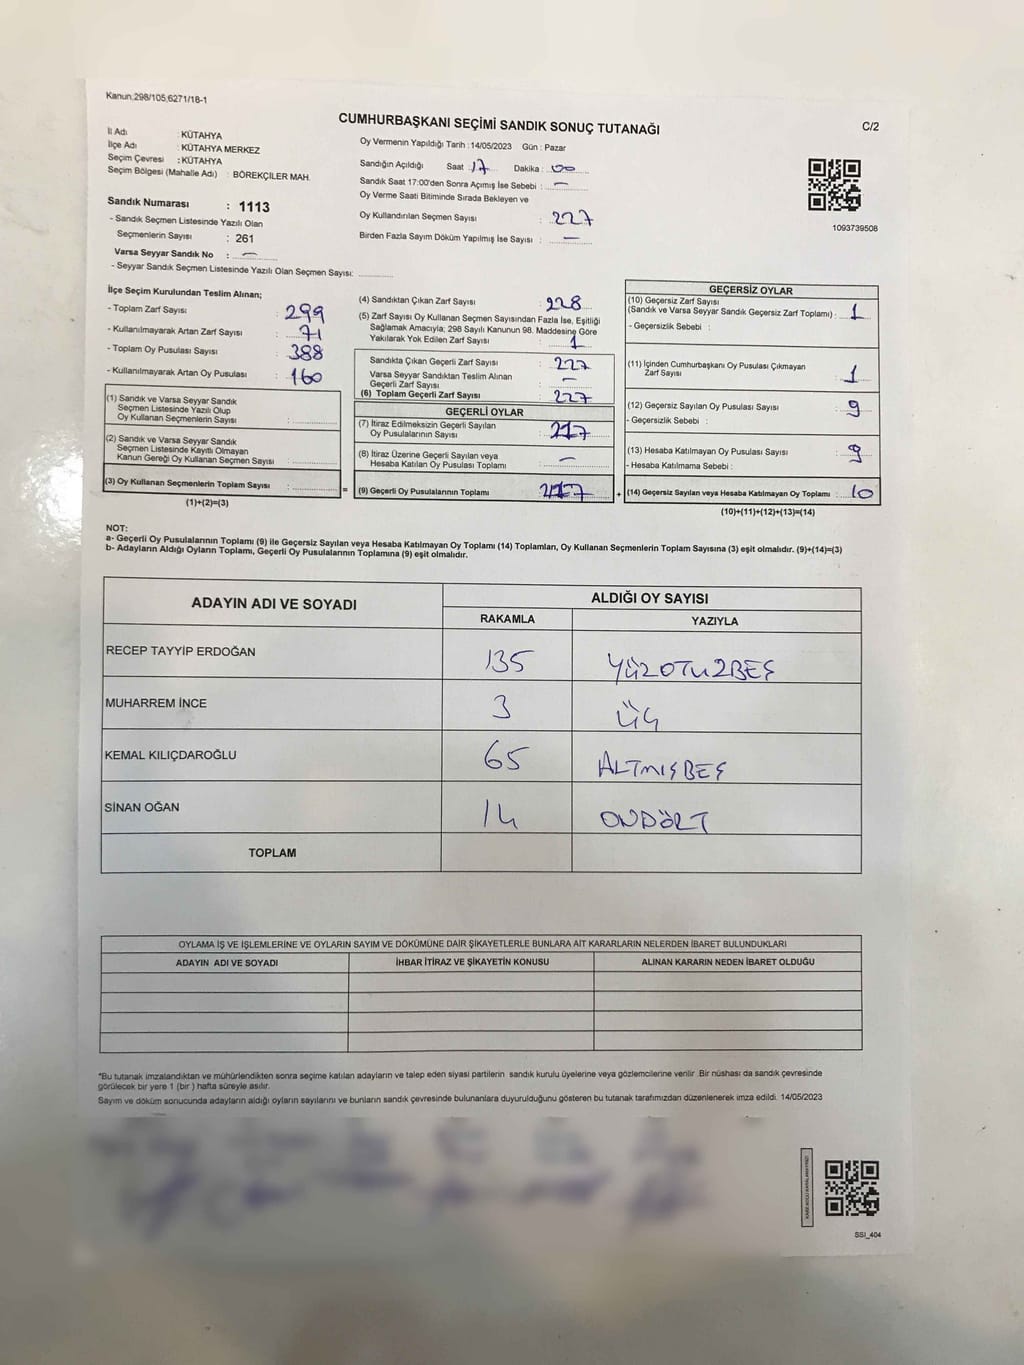 Kanun;298/105,6271/18-1
CUMHURBAŞKANI SEÇİMİ SANDIK SONUÇ TUTANAĞI
C/2
İl Adı : KÜTAHYA
İlçe Adı : KÜTAHYA MERKEZ
Seçim Çevresi : KÜTAHYA
Seçim Bölgesi (Mahalle Adı) : BÖREKÇİLER MAH.
Sandık Numarası : 1113
- Sandık Seçmen Listesinde Yazılı Olan
Seçmenlerin Sayısı : 261
Varsa Seyyar Sandık No : —
- Seyyar Sandık Seçmen Listesinde Yazılı Olan Seçmen Sayısı:
Oy Vermenin Yapıldığı Tarih :14/05/2023 Gün : Pazar
Sandığın Açıldığı Saat : 17 Dakika : 00
Sandık Saat 17:00'den Sonra Açımış İse Sebebi : —
Oy Verme Saati Bitiminde Sırada Bekleyen ve
Oy Kullandırılan Seçmen Sayısı : 227
Birden Fazla Sayım Döküm Yapılmış İse Sayısı : —
1093739508
İlçe Seçim Kurulundan Teslim Alınan;
- Toplam Zarf Sayısı : 299
- Kullanılmayarak Artan Zarf Sayısı : 71
- Toplam Oy Pusulası Sayısı : 388
- Kullanılmayarak Artan Oy Pusulası : 160
(1) Sandık ve Varsa Seyyar Sandık
Seçmen Listesinde Yazılı Olup
Oy Kullanan Seçmenlerin Sayısı :
(2) Sandık ve Varsa Seyyar Sandık
Seçmen Listesinde Kayıtlı Olmayan
Kanun Gereği Oy Kullanan Seçmen Sayısı :
(3) Oy Kullanan Seçmenlerin Toplam Sayısı :
(1)+(2)=(3)
=
(4) Sandıktan Çıkan Zarf Sayısı : 228
(5) Zarf Sayısı Oy Kullanan Seçmen Sayısından Fazla İse, Eşitliği
Sağlamak Amacıyla; 298 Sayılı Kanunun 98. Maddesine Göre
Yakılarak Yok Edilen Zarf Sayısı : 1
Sandıkta Çıkan Geçerli Zarf Sayısı : 227
Varsa Seyyar Sandıktan Teslim Alınan
Geçerli Zarf Sayısı : —
(6) Toplam Geçerli Zarf Sayısı : 227
GEÇERLİ OYLAR
(7) İtiraz Edilmeksizin Geçerli Sayılan
Oy Pusulalarının Sayısı : 217
(8) İtiraz Üzerine Geçerli Sayılan veya
Hesaba Katılan Oy Pusulası Toplamı : —
(9) Geçerli Oy Pusulalarının Toplamı : 217
+
GEÇERSİZ OYLAR
(10) Geçersiz Zarf Sayısı
(Sandık ve Varsa Seyyar Sandık Geçersiz Zarf Toplamı) : 1
- Geçersizlik Sebebi :
(11) İçinden Cumhurbaşkanı Oy Pusulası Çıkmayan
Zarf Sayısı : 1
(12) Geçersiz Sayılan Oy Pusulası Sayısı : 9
- Geçersizlik Sebebi :
(13) Hesaba Katılmayan Oy Pusulası Sayısı : 9
- Hesaba Katılmama Sebebi :
(14) Geçersiz Sayılan veya Hesaba Katılmayan Oy Toplamı : 10
(10)+(11)+(12)+(13)=(14)
NOT:
a- Geçerli Oy Pusulalarının Toplamı (9) ile Geçersiz Sayılan veya Hesaba Katılmayan Oy Toplamı (14) Toplamları, Oy Kullanan Seçmenlerin Toplam Sayısına (3) eşit olmalıdır. (9)+(14)=(3)
b- Adayların Aldığı Oyların Toplamı, Geçerli Oy Pusulalarının Toplamına (9) eşit olmalıdır.
ADAYIN ADI VE SOYADI
ALDIĞI OY SAYISI
RAKAMLA YAZIYLA
RECEP TAYYİP ERDOĞAN 135 YÜZOTUZBEŞ
MUHARREM İNCE 3 ÜÇ
KEMAL KILIÇDAROĞLU 65 ALTMIŞBEŞ
SİNAN OĞAN 14 ONDÖRT
TOPLAM
OYLAMA İŞ VE İŞLEMLERİNE VE OYLARIN SAYIM VE DÖKÜMÜNE DAİR ŞİKAYETLERLE BUNLARA AİT KARARLARIN NELERDEN İBARET BULUNDUKLARI
ADAYIN ADI VE SOYADI İHBAR İTİRAZ VE ŞİKAYETİN KONUSU ALINAN KARARIN NEDEN İBARET OLDUĞU
*Bu tutanak imzalandıktan ve mühürlendikten sonra seçime katılan adayların ve talep eden siyasi partilerin sandık kurulu üyelerine veya gözlemcilerine verilir .Bir nüshası da sandık çevresinde
görülecek bir yere 1 (bir ) hafta süreyle asılır.
Sayım ve döküm sonucunda adayların aldığı oyların sayılarını ve bunların sandık çevresinde bulunanlara duyurulduğunu gösteren bu tutanak tarafımızdan düzenlenerek imza edildi. 14/05/2023
SSI_404